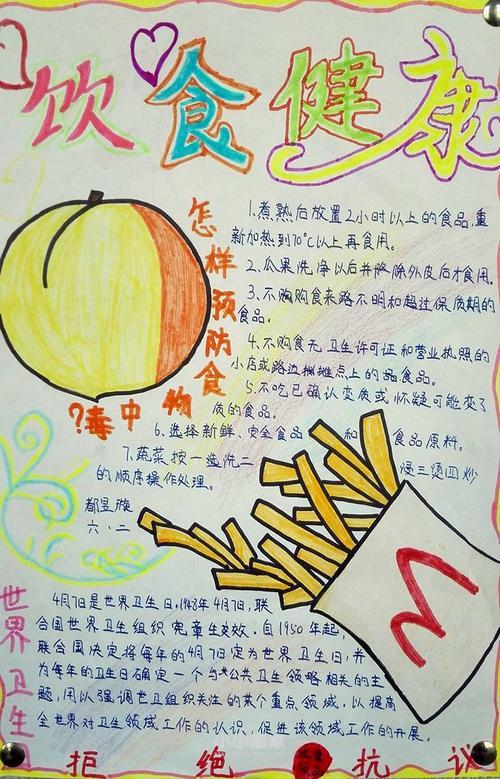 饮食健康
怎样预防食
物中毒?
1.煮熟后放置2小时以上的食品,重
新加热到70℃以上再食用。
2.瓜果洗净以后并除外皮后才食用。
3.不购购食来路不明和超过保质期的
食品。
4.不购食无卫生许可证和营业执照的
小店或路边摊点上的食品。
5.不吃已确认变质或怀疑可能变了
质的食品。
6.选择新鲜、安全食品和食品原料。
7.蔬菜按一选洗二浸三烫四炒
的顺序操作处理。
都昱璇
六、二
世界卫生
4月7日是世界卫生日.1948年4月7日,联
合国世界卫生组织宪章生效.自1950年起,
联合国决定将每年的4月7日定为世界卫生日,并
为每年的卫生日确定一个与公共卫生领略相关的主
题,用以强调世卫组织关注的某个重点领域.以提高
全世界对卫生领域工作的认识,促进该领域工作的开展.
拒绝 抗议